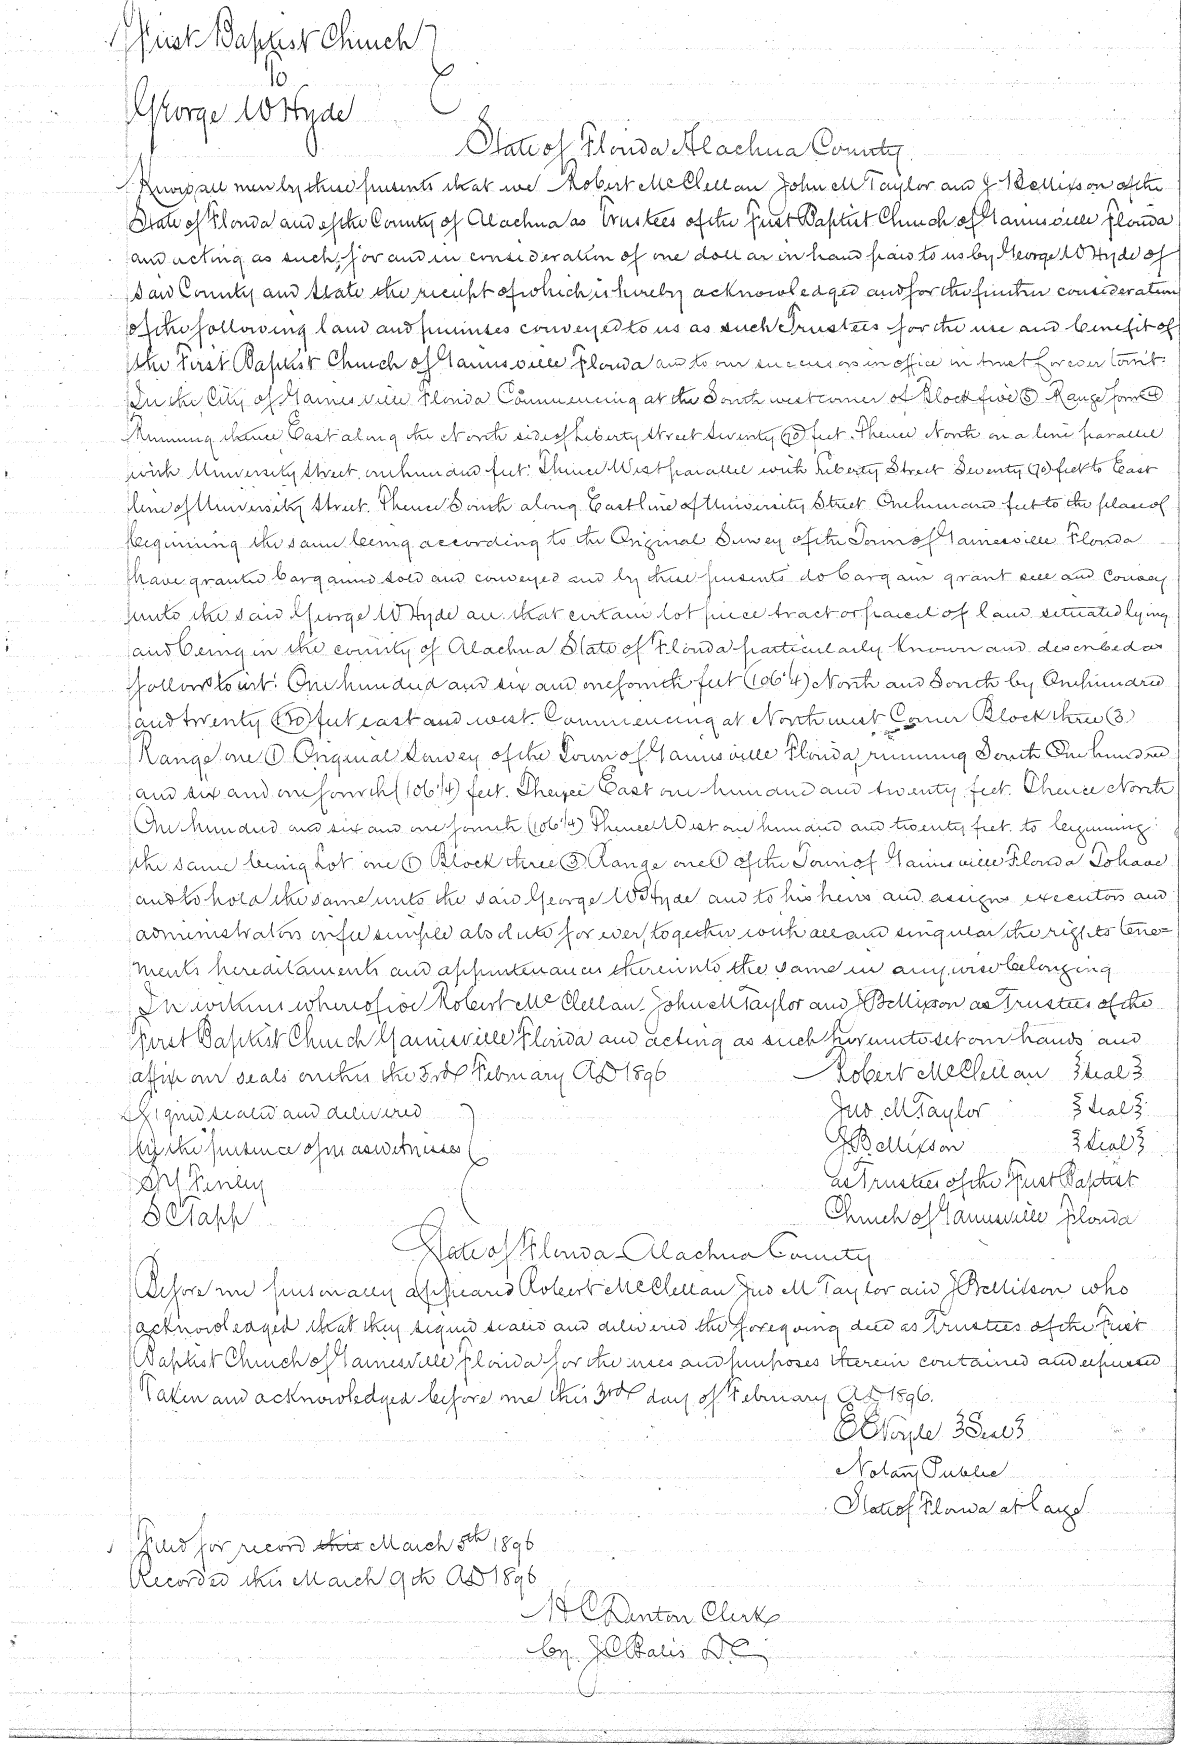 First Baptist Church
To
George W Hyde
State of Florida Alachua County
Know all men by these presents that we Robert McClellan John M Taylor and J B Mixson of the
State of Florida and of the County of Alachua as Trustees of the First Baptist Church of Gainesville Florida
and acting as such, for and in consideration of one dollar in hand paid to us by George W Hyde of
said County and State the receipt of which is hereby acknowledged and for the further consideration
of the following land and premises conveyed to us as such Trustees for the use and benefit of
the First Baptist Church of Gainesville Florida and to our successors in office in trust forever towit.
In the City of Gainesville Florida Commencing at the South west corner of Block five (5) Range four (4)
Running thence East along the North side of Liberty Street Seventy (70) feet. Thence North on a line parallel
with University Street one hundred feet. Thence West parallel with Liberty Street Seventy (70) feet to East
line of University Street. Thence South along East line of University Street One hundred feet to the place of
beginning the same being according to the Original Survey of the Town of Gainesville Florida
have granted bargained sold and conveyed and by these presents do bargain grant sell and convey
unto the said George W Hyde all that certain lot piece tract or parcel of land situated lying
and being in the county of Alachua State of Florida particularly known and described as
follows to wit: One hundred and six and one fourth feet (106¼) North and South by One hundred
and twenty (120) feet east and west. Commencing at North west Corner Block three (3)
Range one (1) Original Survey of the Town of Gainesville Florida, running South One hundred
and six and one fourth (106¼) feet. Thence East one hundred and twenty feet. Thence North
One hundred and six and one fourth (106¼) Thence West one hundred and twenty feet to beginning
the same being Lot one (1) Block three (3) Range one (1) of the Town of Gainesville Florida To have
and to hold the same unto the said George W Hyde and to his heirs and assigns executors and
administrators in fee simple absolute for ever, together with all and singular the rights tene=
ments hereditaments and appurtenances thereunto the same in any wise belonging
In witness whereof we Robert McClellan John M Taylor and J B Mixson as Trustees of the
First Baptist Church Gainesville Florida and acting as such hereunto set our hands and
affix our seals on this the 3rd February AD 1896 Robert McClellan {Seal}
Signed sealed and delivered Jno. M Taylor {Seal}
in the presence of us as witnesses J B Mixson {Seal}
Finley as Trustees of the First Baptist
S C Tapp Church of Gainesville Florida
State of Florida Alachua County
Before me personally appeared Robert McClellan Jno M Taylor and J B Mixson who
acknowledged that they signed sealed and delivered the foregoing deed as Trustees of the First
Baptist Church of Gainesville Florida for the uses and purposes therein contained and expressed
Taken and acknowledged before me this 3rd day of February AD 1896.
E E Voyle {Seal}
Notary Public
State of Florida at large
Filed for record this March 5th 1896
Recorded this March 9th AD 1896
H C Denton Clerk
by J C D.C.